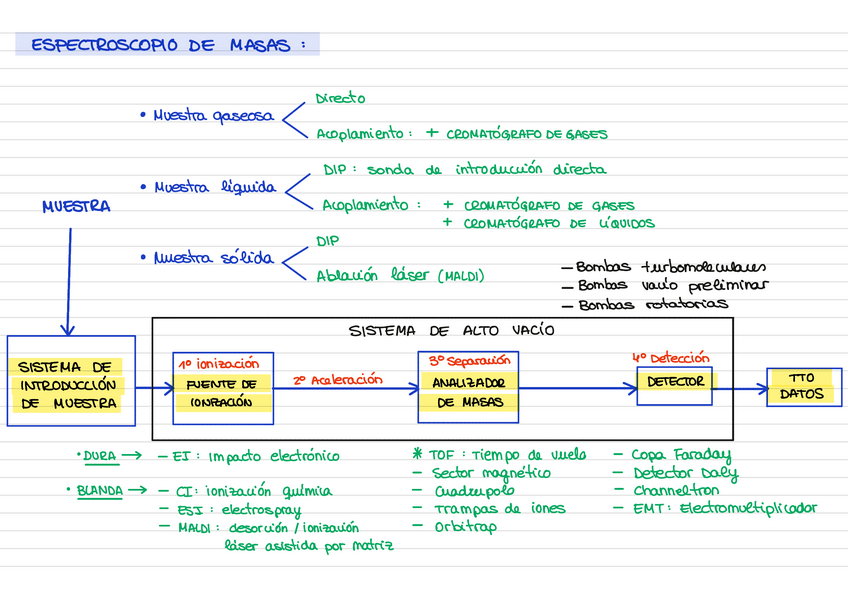 ESPECTROSCOPIO DE MASAS :
• Muestra gaseosa
Directo
Acoplamiento : + CROMATÓGRAFO DE GASES
• Muestra líquida
DIP : sonda de introducción directa
Acoplamiento : + CROMATÓGRAFO DE GASES
+ CROMATÓGRAFO DE LÍQUIDOS
MUESTRA
• Muestra sólida
DIP
Ablación láser (MALDI)
— Bombas turbomoleculares
— Bombas vacío preliminar
— Bombas rotatorias
SISTEMA DE ALTO VACÍO
SISTEMA DE
INTRODUCCIÓN
DE MUESTRA
1º ionización
FUENTE DE
IONIZACIÓN
2º Aceleración
3º Separación
ANALIZADOR
DE MASAS
4º Detección
DETECTOR
TTO
DATOS
• DURA → — EI : Impacto electrónico
• BLANDA → — CI : ionización química
— ESI : electrospray
— MALDI : desorción / ionización
láser asistida por matriz
* TOF : Tiempo de vuelo
— Sector magnético
— Cuadrupolo
— Trampas de iones
— Orbitrap
— Copa Faraday
— Detector Daly
— Channeltron
— EMT : Electromultiplicador